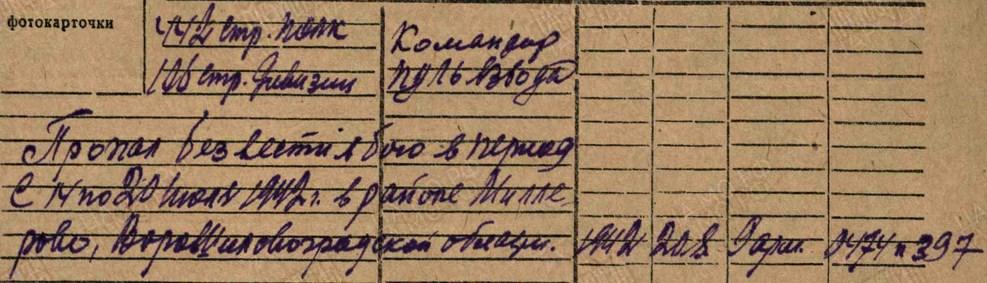 фотокарточки
442 стр. полк
106 стр. дивизии
Командир
пуль взвода
Пропал без вести в бою в период
с 14 по 20 июля 1942 г. в районе Милле-
рово, Ворошиловоградской области.
1942 20.8 9 арм. 0474 п 397